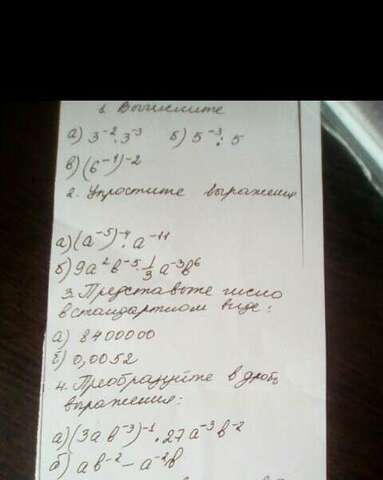 1. Вычислите
а) 3⁻² · 3⁻³ б) 5⁻³ : 5
в) (6⁻¹)⁻²
2. Упростите выражения
а) (a⁻⁵)⁻⁴ : a⁻¹¹
б) 9a²b⁻⁵ · 1/3 a⁻³b⁶
3. Представьте число
в стандартном виде:
а) 8400000
б) 0,0052
4. Преобразуйте в дробь
выражения:
а) (3ab⁻³)⁻¹ · 27a⁻³b⁻²
б) ab⁻² - a⁻²b